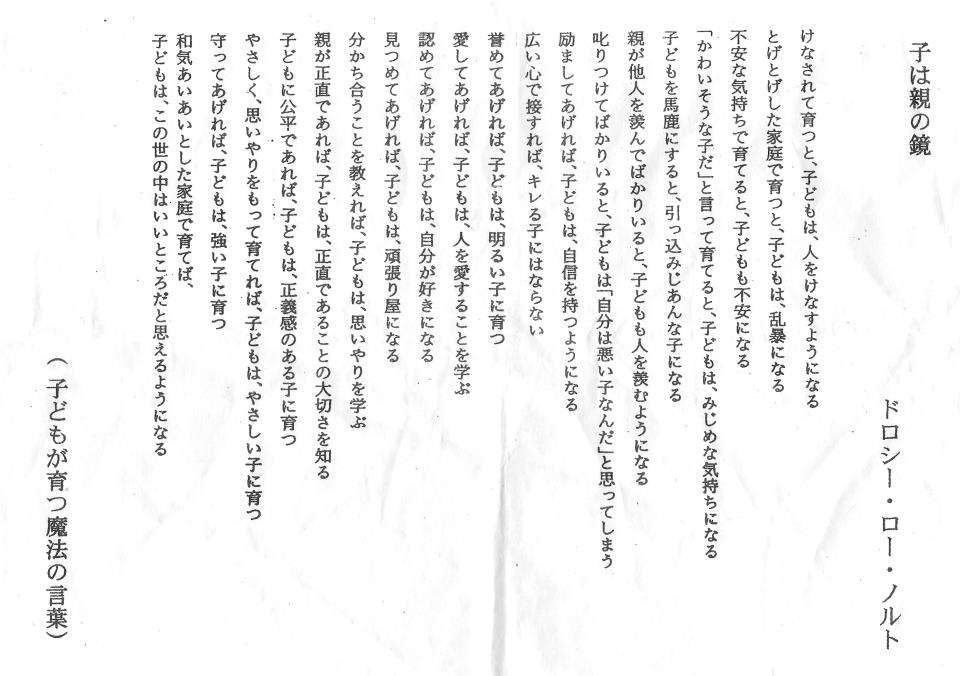 子は親の鏡
ドロシー・ロー・ノルト
けなされて育つと、子どもは、人をけなすようになる
とげとげした家庭で育つと、子どもは、乱暴になる
不安な気持ちで育てると、子どもも不安になる
「かわいそうな子だ」と言って育てると、子どもは、みじめな気持ちになる
子どもを馬鹿にすると、引っ込みじあんな子になる
親が他人を羨んでばかりいると、子どもも人を羨むようになる
叱りつけてばかりいると、子どもは「自分は悪い子なんだ」と思ってしまう
励ましてあげれば、子どもは、自信を持つようになる
広い心で接すれば、キレる子にはならない
誉めてあげれば、子どもは、明るい子に育つ
愛してあげれば、子どもは、人を愛することを学ぶ
認めてあげれば、子どもは、自分が好きになる
見つめてあげれば、子どもは、頑張り屋になる
分かち合うことを教えれば、子どもは、思いやりを学ぶ
親が正直であれば、子どもは、正直であることの大切さを知る
子どもに公平であれば、子どもは、正義感のある子に育つ
やさしく、思いやりをもって育てれば、子どもは、やさしい子に育つ
守ってあげれば、子どもは、強い子に育つ
和気あいあいとした家庭で育てば、
子どもは、この世の中はいいところだと思えるようになる
（子どもが育つ魔法の言葉）